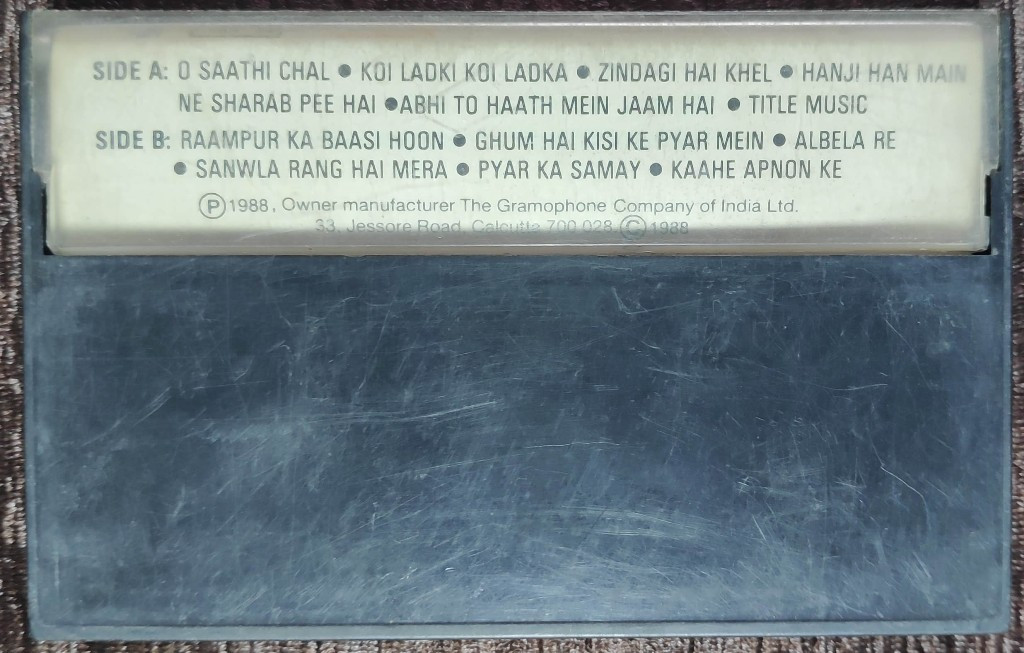 SIDE A: O SAATHI CHAL ● KOI LADKI KOI LADKA ● ZINDAGI HAI KHEL ● HANJI HAN MAIN
NE SHARAB PEE HAI ●ABHI TO HAATH MEIN JAAM HAI ● TITLE MUSIC
SIDE B: RAAMPUR KA BAASI HOON ● GHUM HAI KISI KE PYAR MEIN ● ALBELA RE
● SANWLA RANG HAI MERA ● PYAR KA SAMAY ● KAAHE APNON KE
Ⓟ 1988, Owner manufacturer The Gramophone Company of India Ltd.
33, Jessore Road, Calcutta 700 028 © 1988